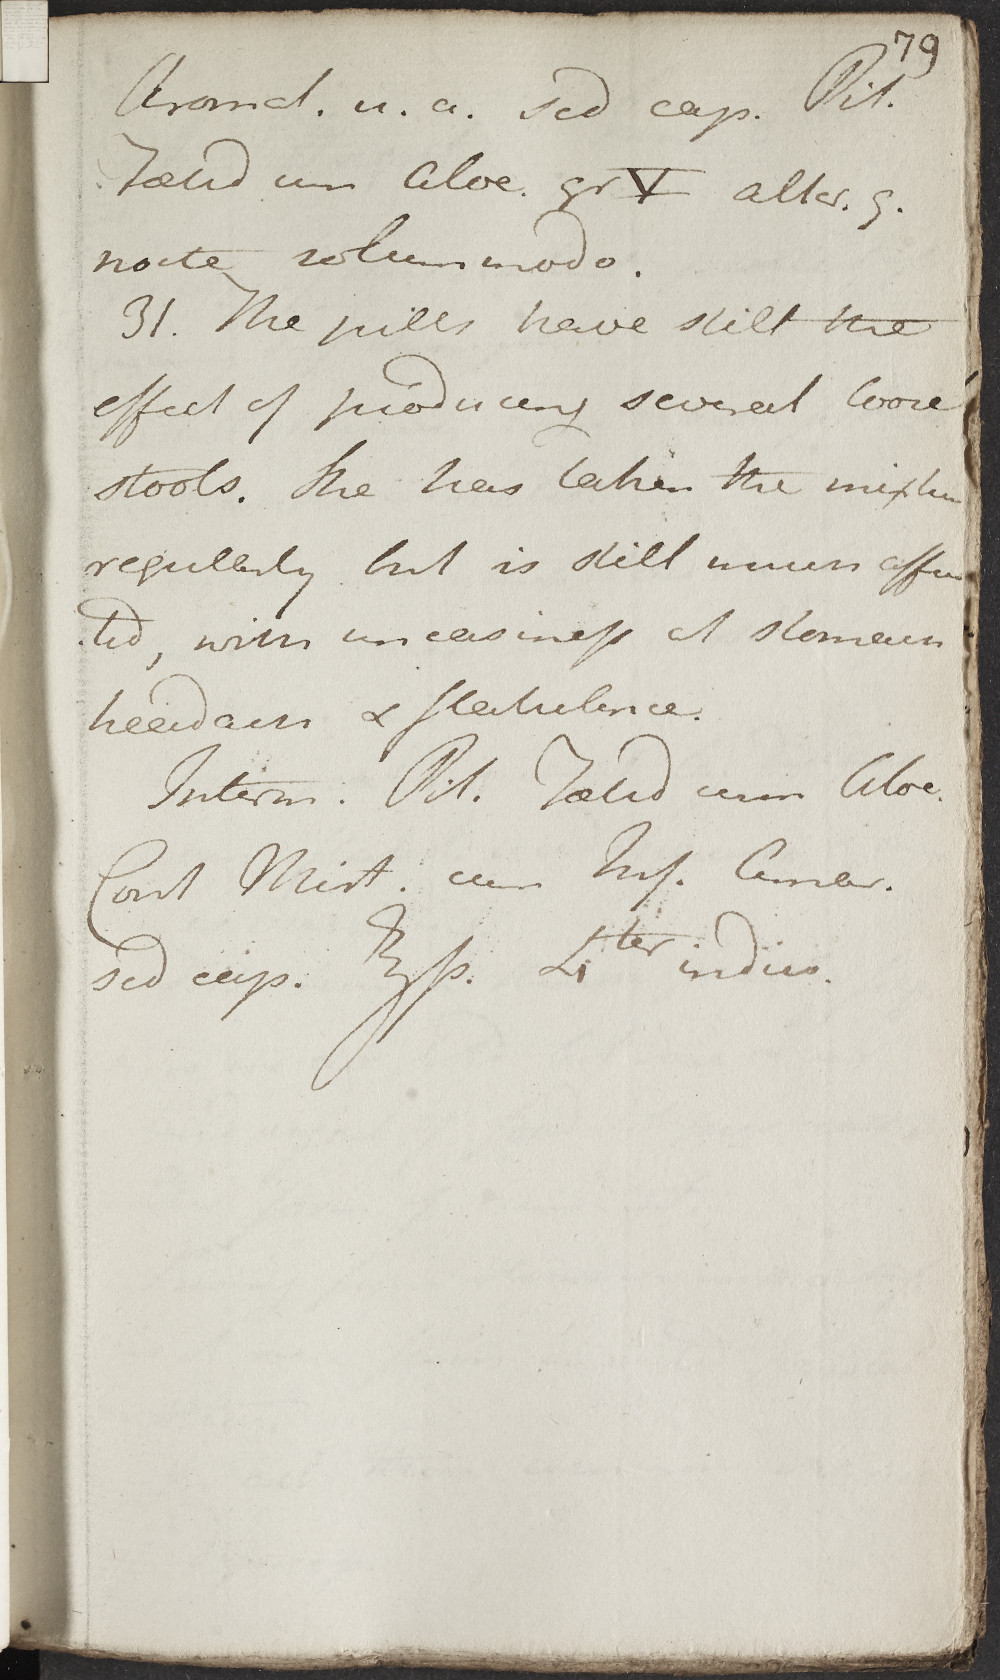 79
Aromat. u. a. sed cap. Pil.
Fœtid cum Aloe. gr V alter. q.
nocte solummodo.
31. The pills have still the
effect of producing several loose
stools. She has taken the mixture
regullarly but is still much affec
ted, with uneasiness at stomach
headach & flatulence.
Interm. Pil. Fœtid cum Aloe.
Cont Mist. cum Inf. Amar.
sed cap. ℥ſs. 4ter indies.